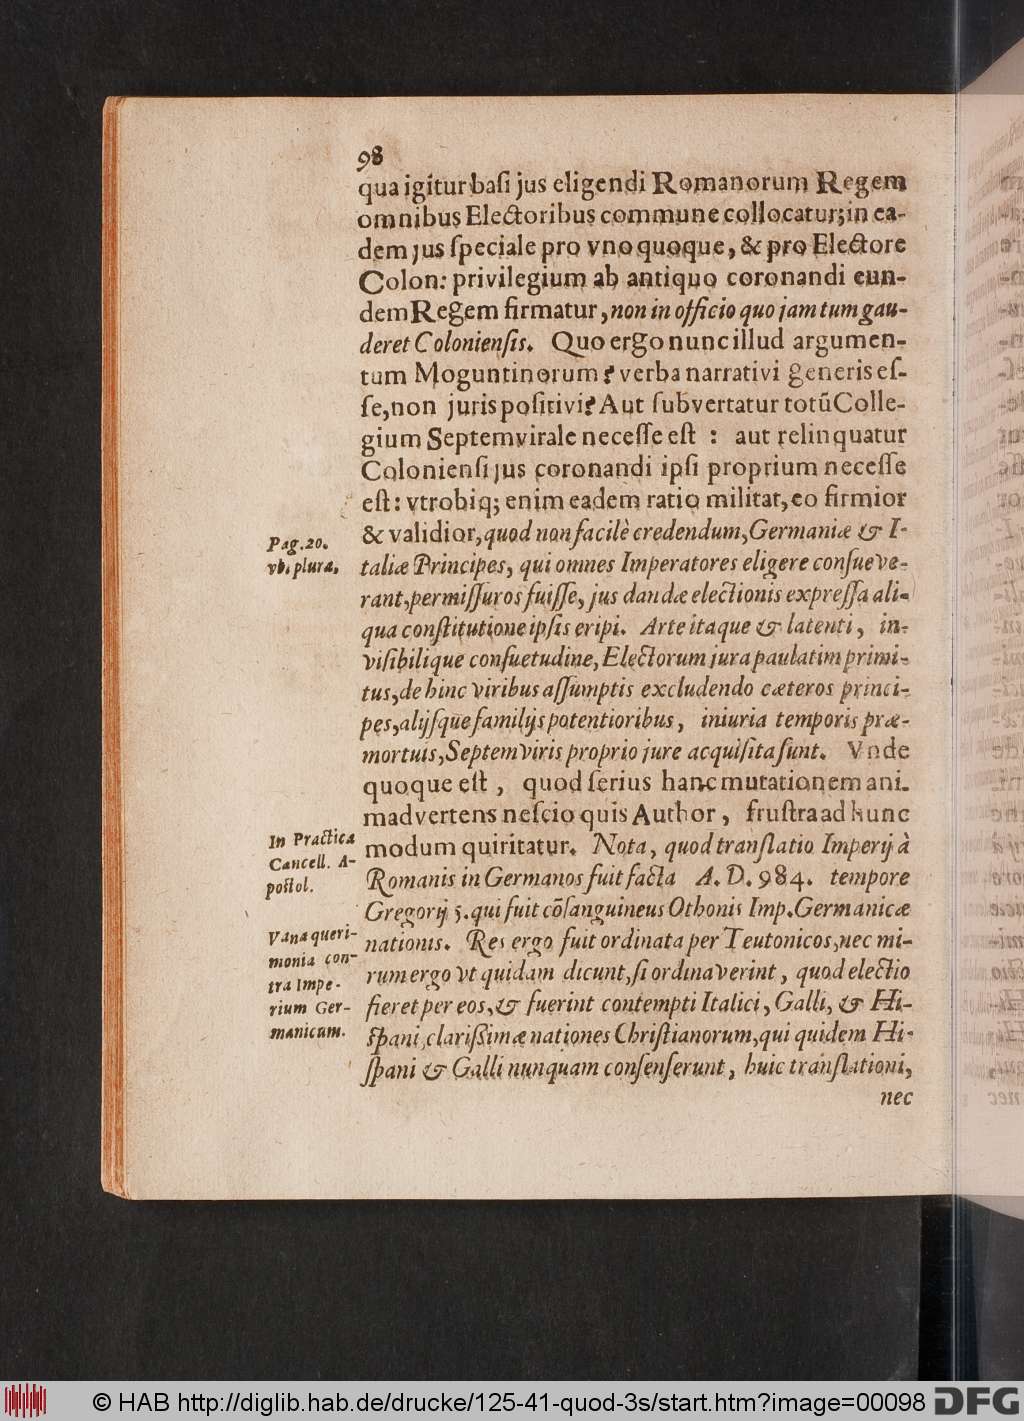 98
qua igitur basi jus eligendi Romanorum Regem
omnibus Electoribus commune collocatur; in ea-
dem jus ſpeciale pro vno quoque, & pro Electore
Colon: privilegium ab antiquo coronandi eun-
dem Regem firmatur, non in officio quo jam tum gau-
deret Colonienſis. Quo ergo nunc illud argumen-
tum Moguntinorum? verba narrativi generis eſ-
ſe, non juris poſitivi? Aut ſubvertatur totū Colle-
gium Septemvirale neceſſe eſt : aut relinquatur
Colonienſi jus coronandi ipſi proprium neceſſe
eſt: vtrobiq; enim eadem ratio militat, eo firmior
& validior, quod non facilè credendum, Germaniæ & I-
Pag. 20.
vb. plura,
taliæ Principes, qui omnes Imperatores eligere conſueve-
rant, permiſſuros fuiſſe, jus dandæ electionis expreſſa ali-
qua conſtitutione ipſis eripi. Arte itaque & latenti, in-
viſibilique conſuetudine, Electorum jura paulatim primi-
tus, de hinc viribus aſſumptis excludendo cæteros princi-
pes, alijſque familijs potentioribus, iniuria temporis præ-
mortuis, Septemviris proprio jure acquiſita ſunt. Vnde
quoque eſt, quod ſerius hanc mutationem ani-
madvertens neſcio quis Author, fruſtra ad hunc
In Practica
Cancell. A-
poſtol.
modum quiritatur. Nota, quod tranſlatio Imperij à
Romanis in Germanos fuit facta A. D. 984. tempore
Gregorij 5. qui fuit cōſanguineus Othonis Imp. Germanicæ
Vana queri-
monia con-
tra Impe-
rium Ger-
manicum.
nationis. Res ergo fuit ordinata per Teutonicos, nec mi-
rum ergo vt quidam dicunt, ſi ordinaverint, quod electio
fieret per eos, & fuerint contempti Italici, Galli, & Hi-
ſpani, clariſſimæ nationes Chriſtianorum, qui quidem Hi-
ſpani & Galli nunquam conſenſerunt, huic tranſlationi,
nec
© HAB http://diglib.hab.de/drucke/125-41-quod-3s/start.htm?image=00098
DFG